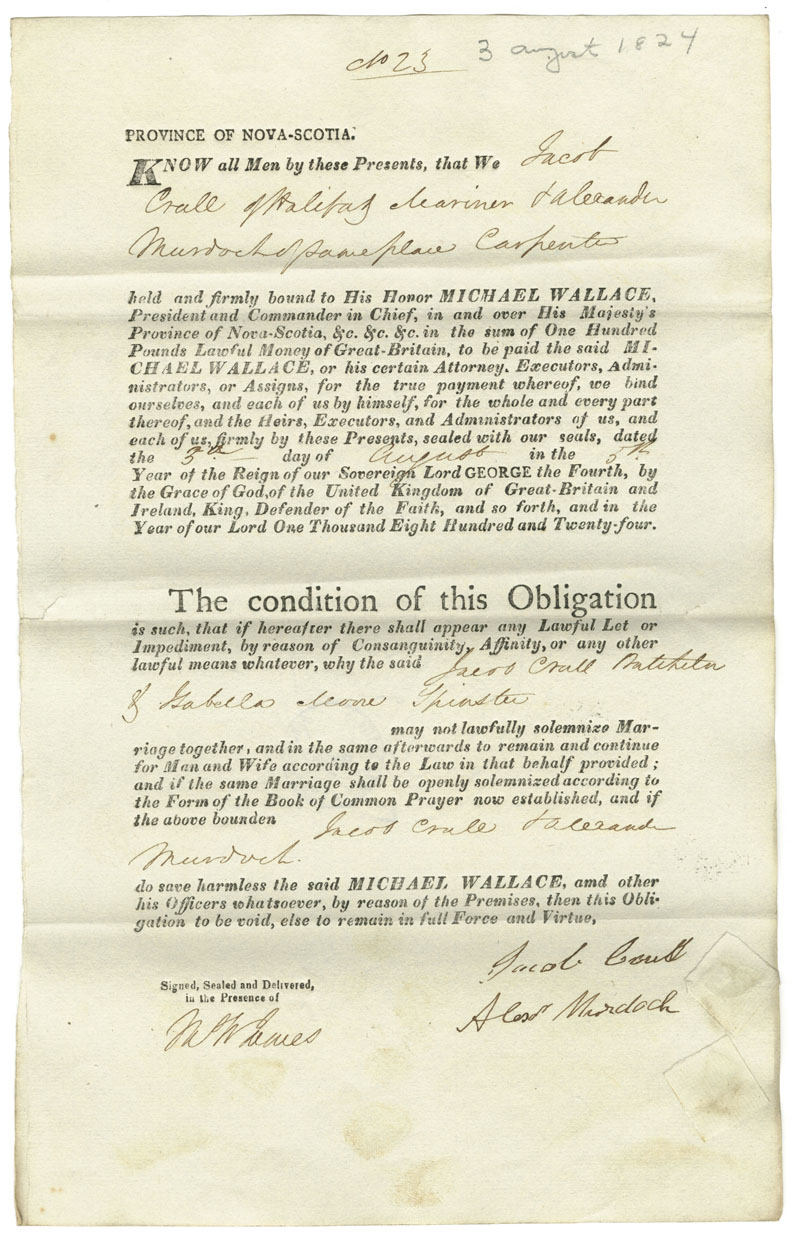 No 23
3 august 1824
PROVINCE OF NOVA-SCOTIA.
KNOW all Men by these Presents, that We Jacob
Crull of Halifax Mariner & Alexander
Murdoch of same place Carpenter
held and firmly bound to His Honor MICHAEL WALLACE,
President and Commander in Chief, in and over His Majesty's
Province of Nova-Scotia, &c. &c. &c. in the sum of One Hundred
Pounds Lawful Money of Great-Britain, to be paid the said MI-
CHAEL WALLACE, or his certain Attorney, Executors, Admi-
nistrators, or Assigns, for the true payment whereof, we bind
ourselves, and each of us by himself, for the whole and every part
thereof, and the Heirs, Executors, and Administrators of us, and
each of us, firmly by these Presents, sealed with our seals, dated
the 3th day of August in the 5th
Year of the Reign of our Sovereign Lord GEORGE the Fourth, by
the Grace of God, of the United Kingdom of Great-Britain and
Ireland, King, Defender of the Faith, and so forth, and in the
Year of our Lord One Thousand Eight Hundred and Twenty-four.
The condition of this Obligation
is such, that if hereafter there shall appear any Lawful Let or
Impediment, by reason of Consanguinity, Affinity, or any other
lawful means whatever, why the said Jacob Crull Batchelor
& Isabella Moore Spinster
may not lawfully solemnize Mar-
riage together, and in the same afterwards to remain and continue
for Man and Wife according to the Law in that behalf provided;
and if the same Marriage shall be openly solemnized according to
the Form of the Book of Common Prayer now established, and if
the above bounden Jacob Crull & Alexander
Murdoch.
do save harmless the said MICHAEL WALLACE, amd other
his Officers whatsoever, by reason of the Premises, then this Obli-
gation to be void, else to remain in full Force and Virtue,
Jacob
Signed, Sealed and Delivered,
in the Presence of
Alexr Murdoch